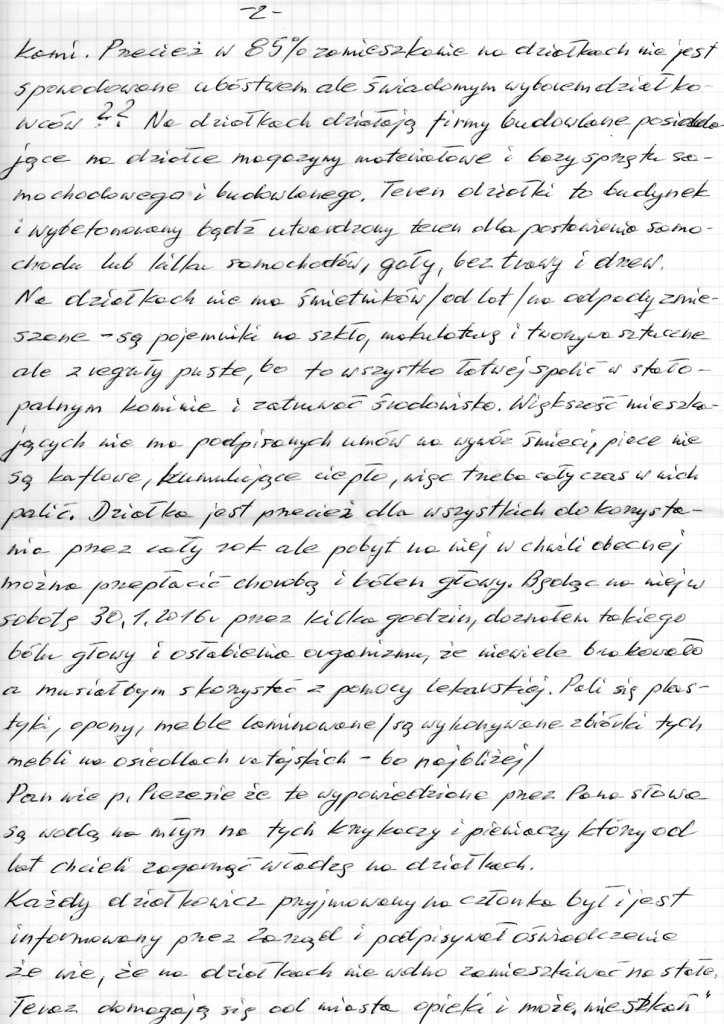 -2-
kami. Przecież w 85% zamieszkanie na działkach nie jest
spowodowane ubóstwem ale świadomym wyborem działko-
wców?? Na działkach działają firmy budowlane posiada
jące na działce magazyny materiałowe i bazy sprzętu sa-
mochodowego i budowlanego. Teren działki to budynek
i wybetonowany bądź utwardzony teren dla postawienia samo-
chodu lub kilku samochodów, goły, bez trawy i drzew.
Na działkach nie ma śmietników /od lat/ na odpady zmie-
szane - są pojemniki na szkło, makulaturę i tworzywa sztuczne
ale z reguły puste, bo to wszystko łatwiej spalić w stało-
palnym kominie i zatruwać środowisko. Większość mieszka-
jących nie ma podpisanych umów na wywóz śmieci, piece nie
są kaflowe, kumulujące ciepło, więc trzeba cały czas w nich
palić. Działka jest przecież dla wszystkich do korzysta-
nia przez cały rok ale pobyt na niej w chwili obecnej
można przepłacić chorobą i bólem głowy. Będąc na niej w
sobotę 30.1.2016r przez kilka godzin, doznałem takiego
bólu głowy i osłabienia organizmu, że niewiele brakowało
a musiałbym skorzystać z pomocy lekarskiej. Pali się plas-
tyki, opony, meble laminowane /są wykonywane zbiórki tych
mebli na osiedlach ratajskich - bo najbliżej/
Pan wie p. Prezesie że te wypowiedziane przez Pana słowa
są wodą na młyn na tych krzykaczy i pieniaczy który od
lat chcieli zagarnąć władzę na działkach.
Każdy działkowicz przyjmowany na członka był i jest
informowany przez Zarząd i podpisywał oświadczenie
że wie, że na działkach nie wolno zamieszkiwać na stałe.
Teraz domagają się od miasta opieki i może „mieszkań"